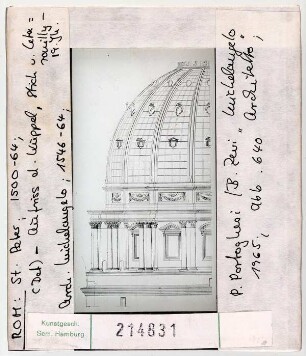 ROM: St. Peter; 1500-64;
(Det) - Aufriss d. Kuppel, Stich v.
19. Jh.
Arch. Michelangelo; 1546-64;
P. Portoghesi / B. Zevi "Michelangelo
Architetto";
1965; Abb. 640
Kunstgesch.
Sem. Hamburg
214831